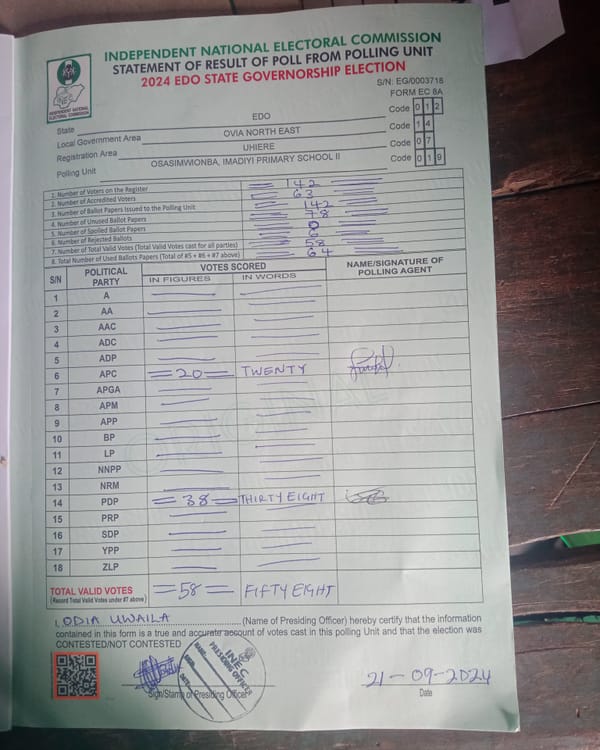 INDEPENDENT NATIONAL ELECTORAL COMMISSION
STATEMENT OF RESULT OF POLL FROM POLLING UNIT
2024 EDO STATE GOVERNORSHIP ELECTION
S/N: EG/0003718
FORM EC 8A
INEC
INDEPENDENT NATIONAL ELECTORAL COMMISSION
State EDO Code 0 1 2
Local Government Area OVIA NORTH EAST Code 1 4
Registration Area UHIERE Code 0 7
Polling Unit OSASIMWIONBA, IMADIYI PRIMARY SCHOOL II Code 0 1 9
1. Number of Voters on the Register 142
2. Number of Accredited Voters 63
3. Number of Ballot Papers Issued to the Polling Unit 142
4. Number of Unused Ballot Papers 78
5. Number of Spoiled Ballot Papers 0
6. Number of Rejected Ballots 6
7. Number of Total Valid Votes (Total Valid Votes cast for all parties) 58
8. Total Number of Used Ballots Papers (Total of #5 + #6 + #7 above) 64
S/N POLITICAL PARTY VOTES SCORED NAME/SIGNATURE OF POLLING AGENT
IN FIGURES IN WORDS
1 A
2 AA
3 AAC
4 ADC
5 ADP
6 APC =20= TWENTY
7 APGA
8 APM
9 APP
10 BP
11 LP
12 NNPP
13 NRM
14 PDP =38= THIRTY EIGHT
15 PRP
16 SDP
17 YPP
18 ZLP
TOTAL VALID VOTES =58= FIFTY EIGHT
(Record Total Valid Votes under #7 above)
I, ODIA UWAILA (Name of Presiding Officer) hereby certify that the information
contained in this form is a true and accurate account of votes cast in this polling Unit and that the election was
CONTESTED/NOT CONTESTED
INEC
PRESIDING OFFICER
21-09-2024
Sign/Stamp of Presiding Officer Date